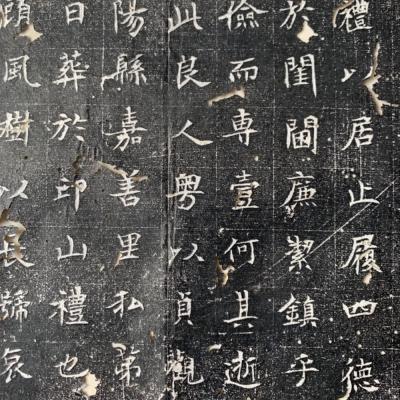 禮以居止履四德
於閨閫廉絜鎮乎
儉而專壹何其逝
此良人粤以貞觀
陽縣嘉善里私第
日葬於邙山禮也
顧風樹以長號哀